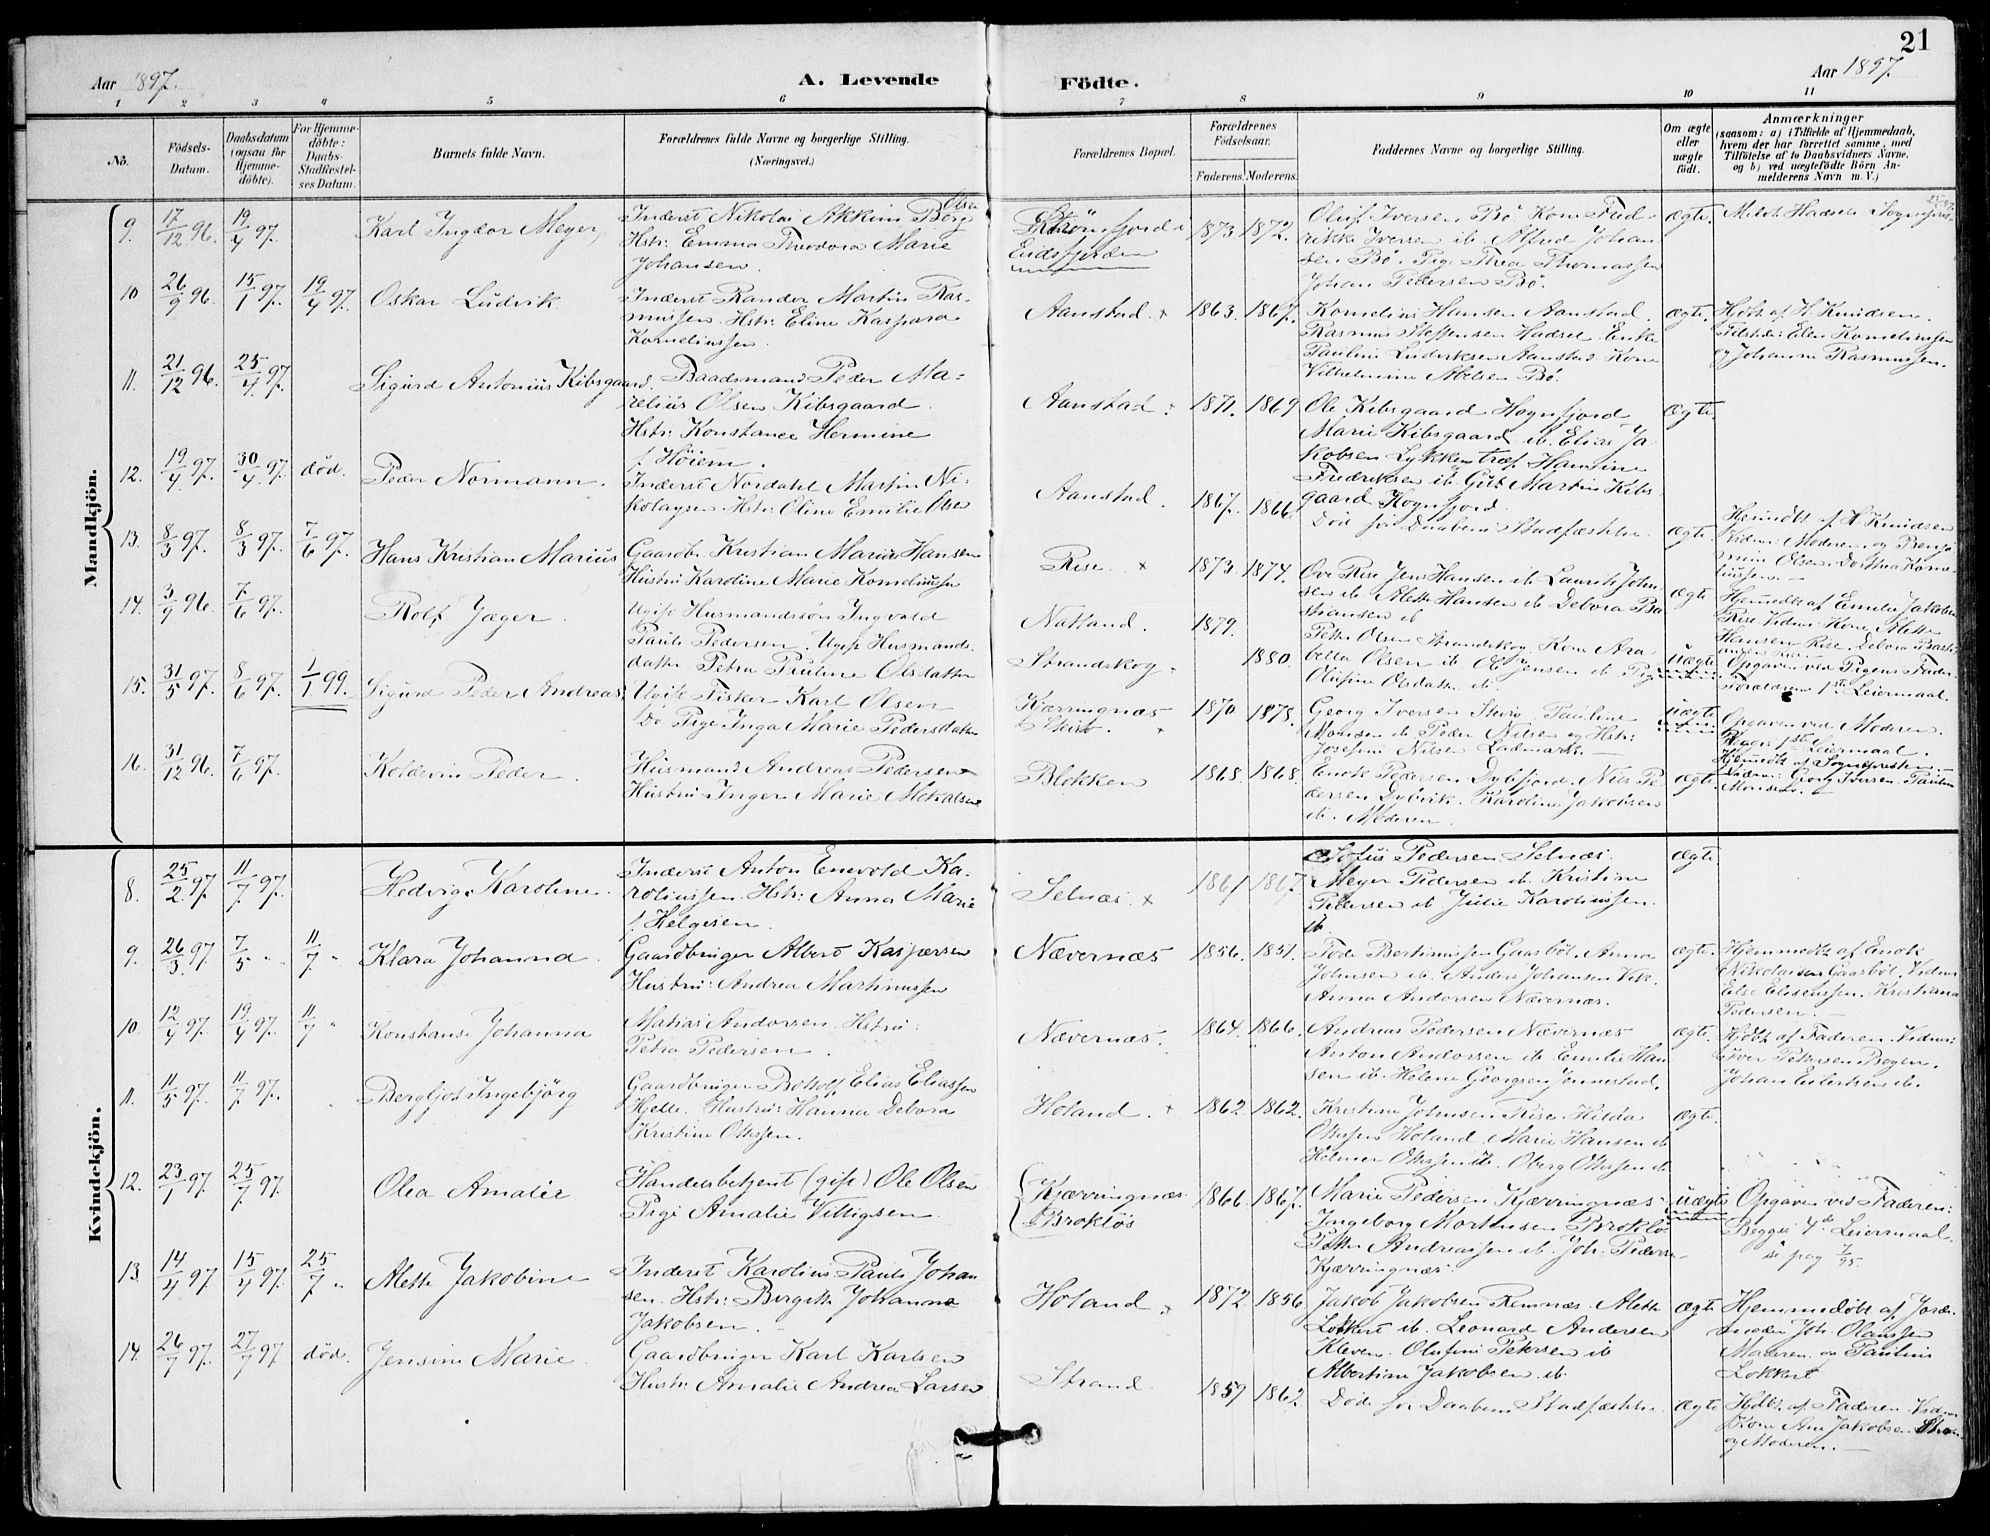 21
Aar 1897.
A. Levende
Födte.
Aar 1897.
1 2 3 4 5 6 7 8 9 10 11
No.
Födsels-
Datum.
Daabsdatum
(ogsaa för
Hjemme-
döbte).
For Hjemme-
döbte:
Daabs-
Stadfæstel-
ses Datum.
Barnets fulde Navn.
Forældrenes fulde Navne og borgerlige Stilling.
(Næringsvei.)
Forældrenes Bopæl.
Forældrenes
Födselsaar.
Faderens. Moderens.
Faddernes Navne og borgerlige Stilling.
Om ægte
eller
uægte
födt.
Anmærkninger
(saasom: a) i Tilfælde af Hjemmedaab,
hvem der har forrettet samme, med
Tilföielse af to Daabsvidners Navne,
og b) ved uægtefödte Börn An-
melderens Navn m. V.)
Mandkjön.
9. 17/12 96. 19/4 97. Karl Ingvor Meyer
Inderst Nikolai Akkim Berg Olsen
Hstr: Emma Theodora Marie
Johansen.
Eidsfjorden
1873. 1872.
Oluf Iversen Bö. Kone Fred-
rikke Iversen ib. Alfred Johan
sen Bö. Pige Thea Thomassen
Johan Pedersen Bö.
ægte.
10 26/9 96. 15/1 97. 19/4 97. Oskar Ludvik
Inderst Randor Martin Ras-
mussen. Hstr: Eline Kaspara
Korneliussen.
Aanstad. x
1863. 1867.
Kornelius Hansen Aanstad.
Rasmus Steffensen Hadsel. Enke
Pauline Ludviksen Aanstad. Kone
Vilhelmine Abelsen Bö.
ægte.
Hjdt. af H. Knudsen.
Tilstede: Elen Korneliussen
og Johanna Rasmussen.
11. 21/12 96. 25/4 97. Sigurd Antonius Kibsgaard.
Baadsmand Peder Ma-
relius Olsen Kibsgaard.
Hstr: Konstance Hermine
f. Höiem.
Aanstad.
1871. 1869
Ole Kibsgaard Hognfjord
Marie Kibsgaard ib. Elias Ja-
kobsen Lykkentref. Hansine
Fredriksen ib. Gift Martin Kibs-
gaard Hognfjord.
ægte.
12. 19/4 97. 30/4 97. död. Peder Normann.
Inderst Nordahl Martin Ni-
kolaysen. Hstr: Oline Emilie Olsen
Aanstad.
1867. 1866.
Död för Daabens Stadfæstelse.
ægte.
13. 8/3 97. 8/3 97. 7/6 97. Hans Kristian Marius
Gaardbr. Kristian Marius Hansen
Hustru Karoline Marie Korneliussen
Rise. x
1873. 1874.
Ove Rise. Jens Hansen ib. Laurits John-
sen ib. Alette Hansen ib. Debora Ba-
stiansen ib
ægte
Hjemdbt. af H. Knudsen
Vidner: Moderen og Benja-
min Olsen. Dorthea Korne-
liussen.
14. 3/9 96. 7/6 97. Rolf Jæger.
Ugift Husmandssön Ingvald
Pauli Pedersen. Ugift Husmands-
datter Petra Pauline Olsdatter
Natland.
Strandskog.
1879. 1880.
Petter Olsen Strandskog. Kone Ara-
bella Olsen ib. Ole Jensen ib. Pige
Olufine Olsdatter ib.
uægte
Opgaven ved Pigens Fader.
Forældrenes 1ste Leiermaal.
15. 31/5 97. 8/6 97. 1/1 99. Sigurd Peder Andreas.
Ugift Fisker Karl Olsen
Do Pige Inga Marie Pedersdatter
Kjærringnæs
1870. 1873.
Georg Iversen Pauline
Monsen ib. Peder Nilsen og Hstr:
Josefine Nilsen
uægte
Opgaven ved Moderen.
Begges 1ste Leiermaal.
Hjemdbt. af Sognepresten.
Vidner: Georg Iversen. Pauline
Monsen.
16. 31/12 96. 7/6 97. Koldevin Peder.
Husmand Andreas Pedersen
Hustru Inger Marie Mekalsen
Blokken
1868. 1868.
Enok Pedersen Dybfjord. Nils Pe-
dersen Dybvik. Karoline Jakobsen
ib. Moderen.
ægte.
Kvindekjön.
8. 25/2 97. 11/7 97. Hedvig Karoline.
Inderst Anton Enevold Ka-
roliussen. Hstr: Anna Marie
f. Helgesen.
Selnæs. x
1861 1867
Sofus Pedersen Selnæs.
Meyer Pedersen ib. Kristine
Pedersen ib. Julie Karoliussen.
ib.
ægte
9. 26/3 97 7/5 " 11/7 " Klara Johanna.
Gaardbruger Albert Kaspersen
Hustru: Andrea Martinussen
Nævernæs
1856. 1851.
Tode Bertinussen Gaasböl. Anna
Johnsen ib. Anders Johansen Vik.
Anna Andorsen Nævernæs.
ægte.
Hjemmedbt. af Enok
Nikolaisen Gaasböl. Vidner:
Else Eliseussen. Kristiana
Pedersen.
10. 12/4 97. 19/4 97. 11/7 " Konstanse Johanna
Matias Andorsen. Hstru:
Petra Pedersen.
Nævernæs.
1864. 1866.
Andreas Pedersen Nævernæs
Anton Andorsen ib. Emilie Han-
sen ib. Helene Georgsen Jennestad.
ægte.
Hjdbt. af Faderen. Vidner:
Iver Pettersen Bogen.
Johan Eilertsen ib.
11. 11/5 97. 11/7 97. Bergljot Ingebjörg
Gaardbruger Botolf Elias Eliassen
Helle. Hustru: Hanna Debora
Kristine Ottesen.
Holand. x
1862 1862.
Kristine Johnsen Rise. Hilda
Ottesen Holand. Marie Hansen ib
Helmer Ottesen ib. Oberg Ottesen ib
ægte.
12. 23/1 97. 25/7 97. Olea Amalie
Handelsbetjent (gift) Ole Olsen
Pige Amalie Vittigsen.
Kjærringnæs.
Broklös
1866. 1867.
Marie Pedersen Kjærringnæs.
Ingeborg Mortensen Broklös
Petter Andreassen ib. Joh. Peders-
Kjærringnæs.
uægte
Opgaven ved Faderen:
Begges 4de Leiermaal.
se pag 7/95.
13. 14/4 97 15/4 97. 25/7 " Alette Jakobine
Inderst Karolius Pauli Johan
sen. Hstr: Birgitte Johanna
Jakobsen.
Holand. x
1872 1856
Jakob Jakobsen Remnæs. Alette
Lokkert ib. Leonard Andersen
Kleven. Olufine Petersen ib
Albertine Jakobsen ib.
ægte
Hjemmedöbt af Jorde-
moder Joh. Olaussen
Maaren og Pauline
Lokkert
14. 26/7 97. 27/7 97 död. Jensine Marie
Gaardbruger Karl Karlsen
Hustr: Amalie Andrea Larsen
Strand
1859 1862
Döde för Daabens Stadfæstelse.
ægte
Hjdbt. af Faderen. Vidner
Kone Ane Jakobsen
og Moderen.